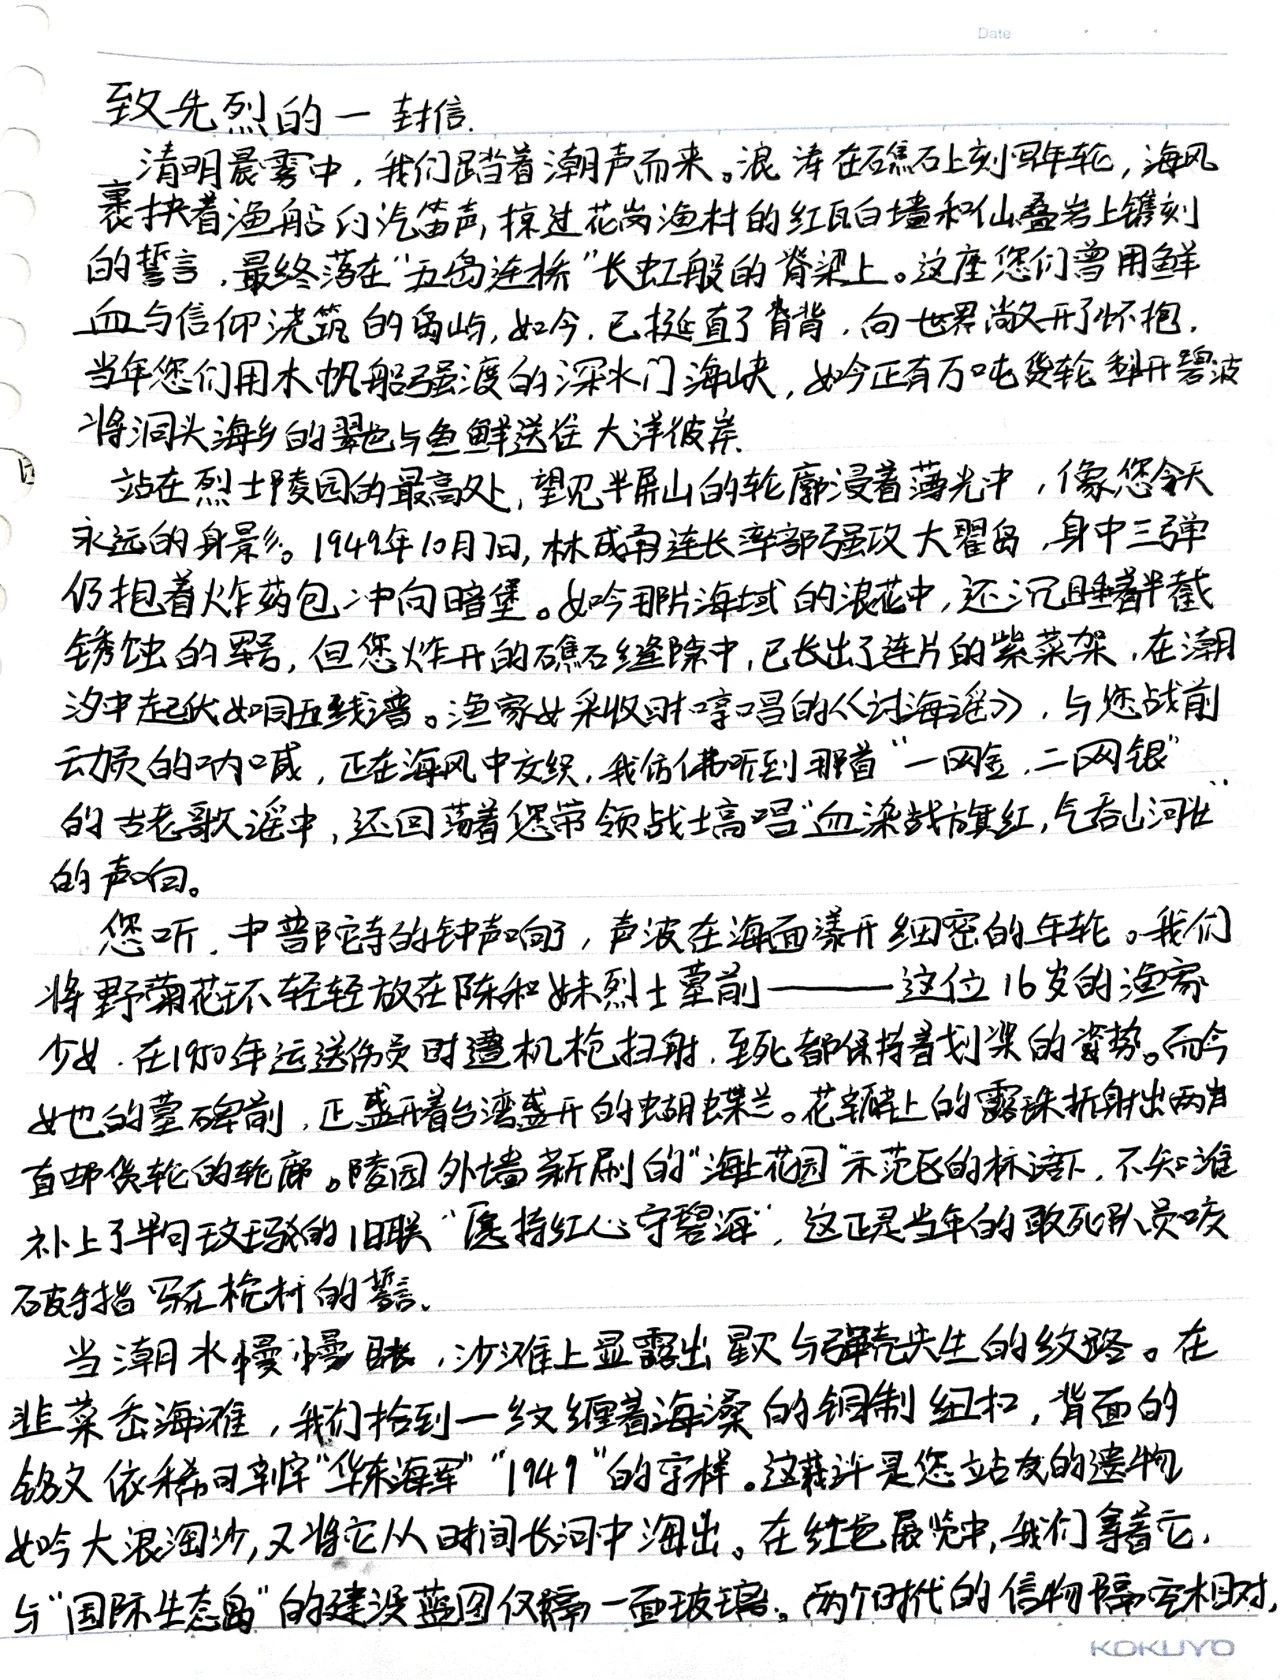 Date
致先烈的一封信.
清明晨雾中，我们踏着潮声而来。浪涛在礁石上刻写年轮，海风
裹挟着渔船的汽笛声，掠过花岗渔村的红瓦白墙和仙叠岩上镌刻
的誓言，最终落在“五岛连桥”长虹般的脊梁上。这座您们曾用鲜
血与信仰浇筑的岛屿，如今，已挺直了脊背，向世界敞开了怀抱，
当年您们用木帆船强渡的深水门海峡，如今正有万吨货轮犁开碧波
将洞头海乡的翠色与鱼鲜送往大洋彼岸.
站在烈士陵园的最高处，望见半屏山的轮廓浸着薄光中，像您今天
永远的身影。1949年10月7日，林成南连长率部强攻大瞿岛，身中三弹
仍抱着炸药包冲向暗堡。如今那片海域的浪花中，还沉睡着半截
锈蚀的军号，但您炸开的礁石缝隙中，已长出了连片的紫菜架，在潮
汐中起伏如同五线谱。渔家女采收时哼唱的《讨海谣》，与您战前
动员的呐喊，正在海风中交织，我仿佛听到那首“一网金，二网银”
的古老歌谣中，还回荡着您带领战士高唱“血染战旗红，气吞山河壮”
的声响。
您听，中普陀寺的钟声响了，声波在海面漾开细密的年轮。我们
将野菊花环轻轻放在陈和妹烈士墓前———这位16岁的渔家
少女，在1950年运送伤员时遭机枪扫射，至死都保持着划桨的姿势。而今
她的墓碑前，正盛开着台湾盛开的蝴蝶兰。花瓣上的露珠折射出两岸
直邮货轮的轮廓。陵园外墙新刷的“海上花园”示范区的标语下，不知谁
补上了半句斑驳的旧联“愿持红心守碧海”，这正是当年的敢死队员咬
破手指写在桅杆的誓言.
当潮水慢慢退，沙滩上显露出星贝与弹壳共生的纹路。在
韭菜岙海滩，我们拾到一纹缠着海藻的铜制纽扣，背面的
铭文依稀可辨“华东海军”“1949”的字样。这或许是您战友的遗物
如今大浪淘沙，又将它从时间长河中淘出。在红色展览中，我们拿着它，
与“国际生态岛”的建设蓝图仅隔一面玻璃。两个时代的信物隔空相对，
KOKUYO